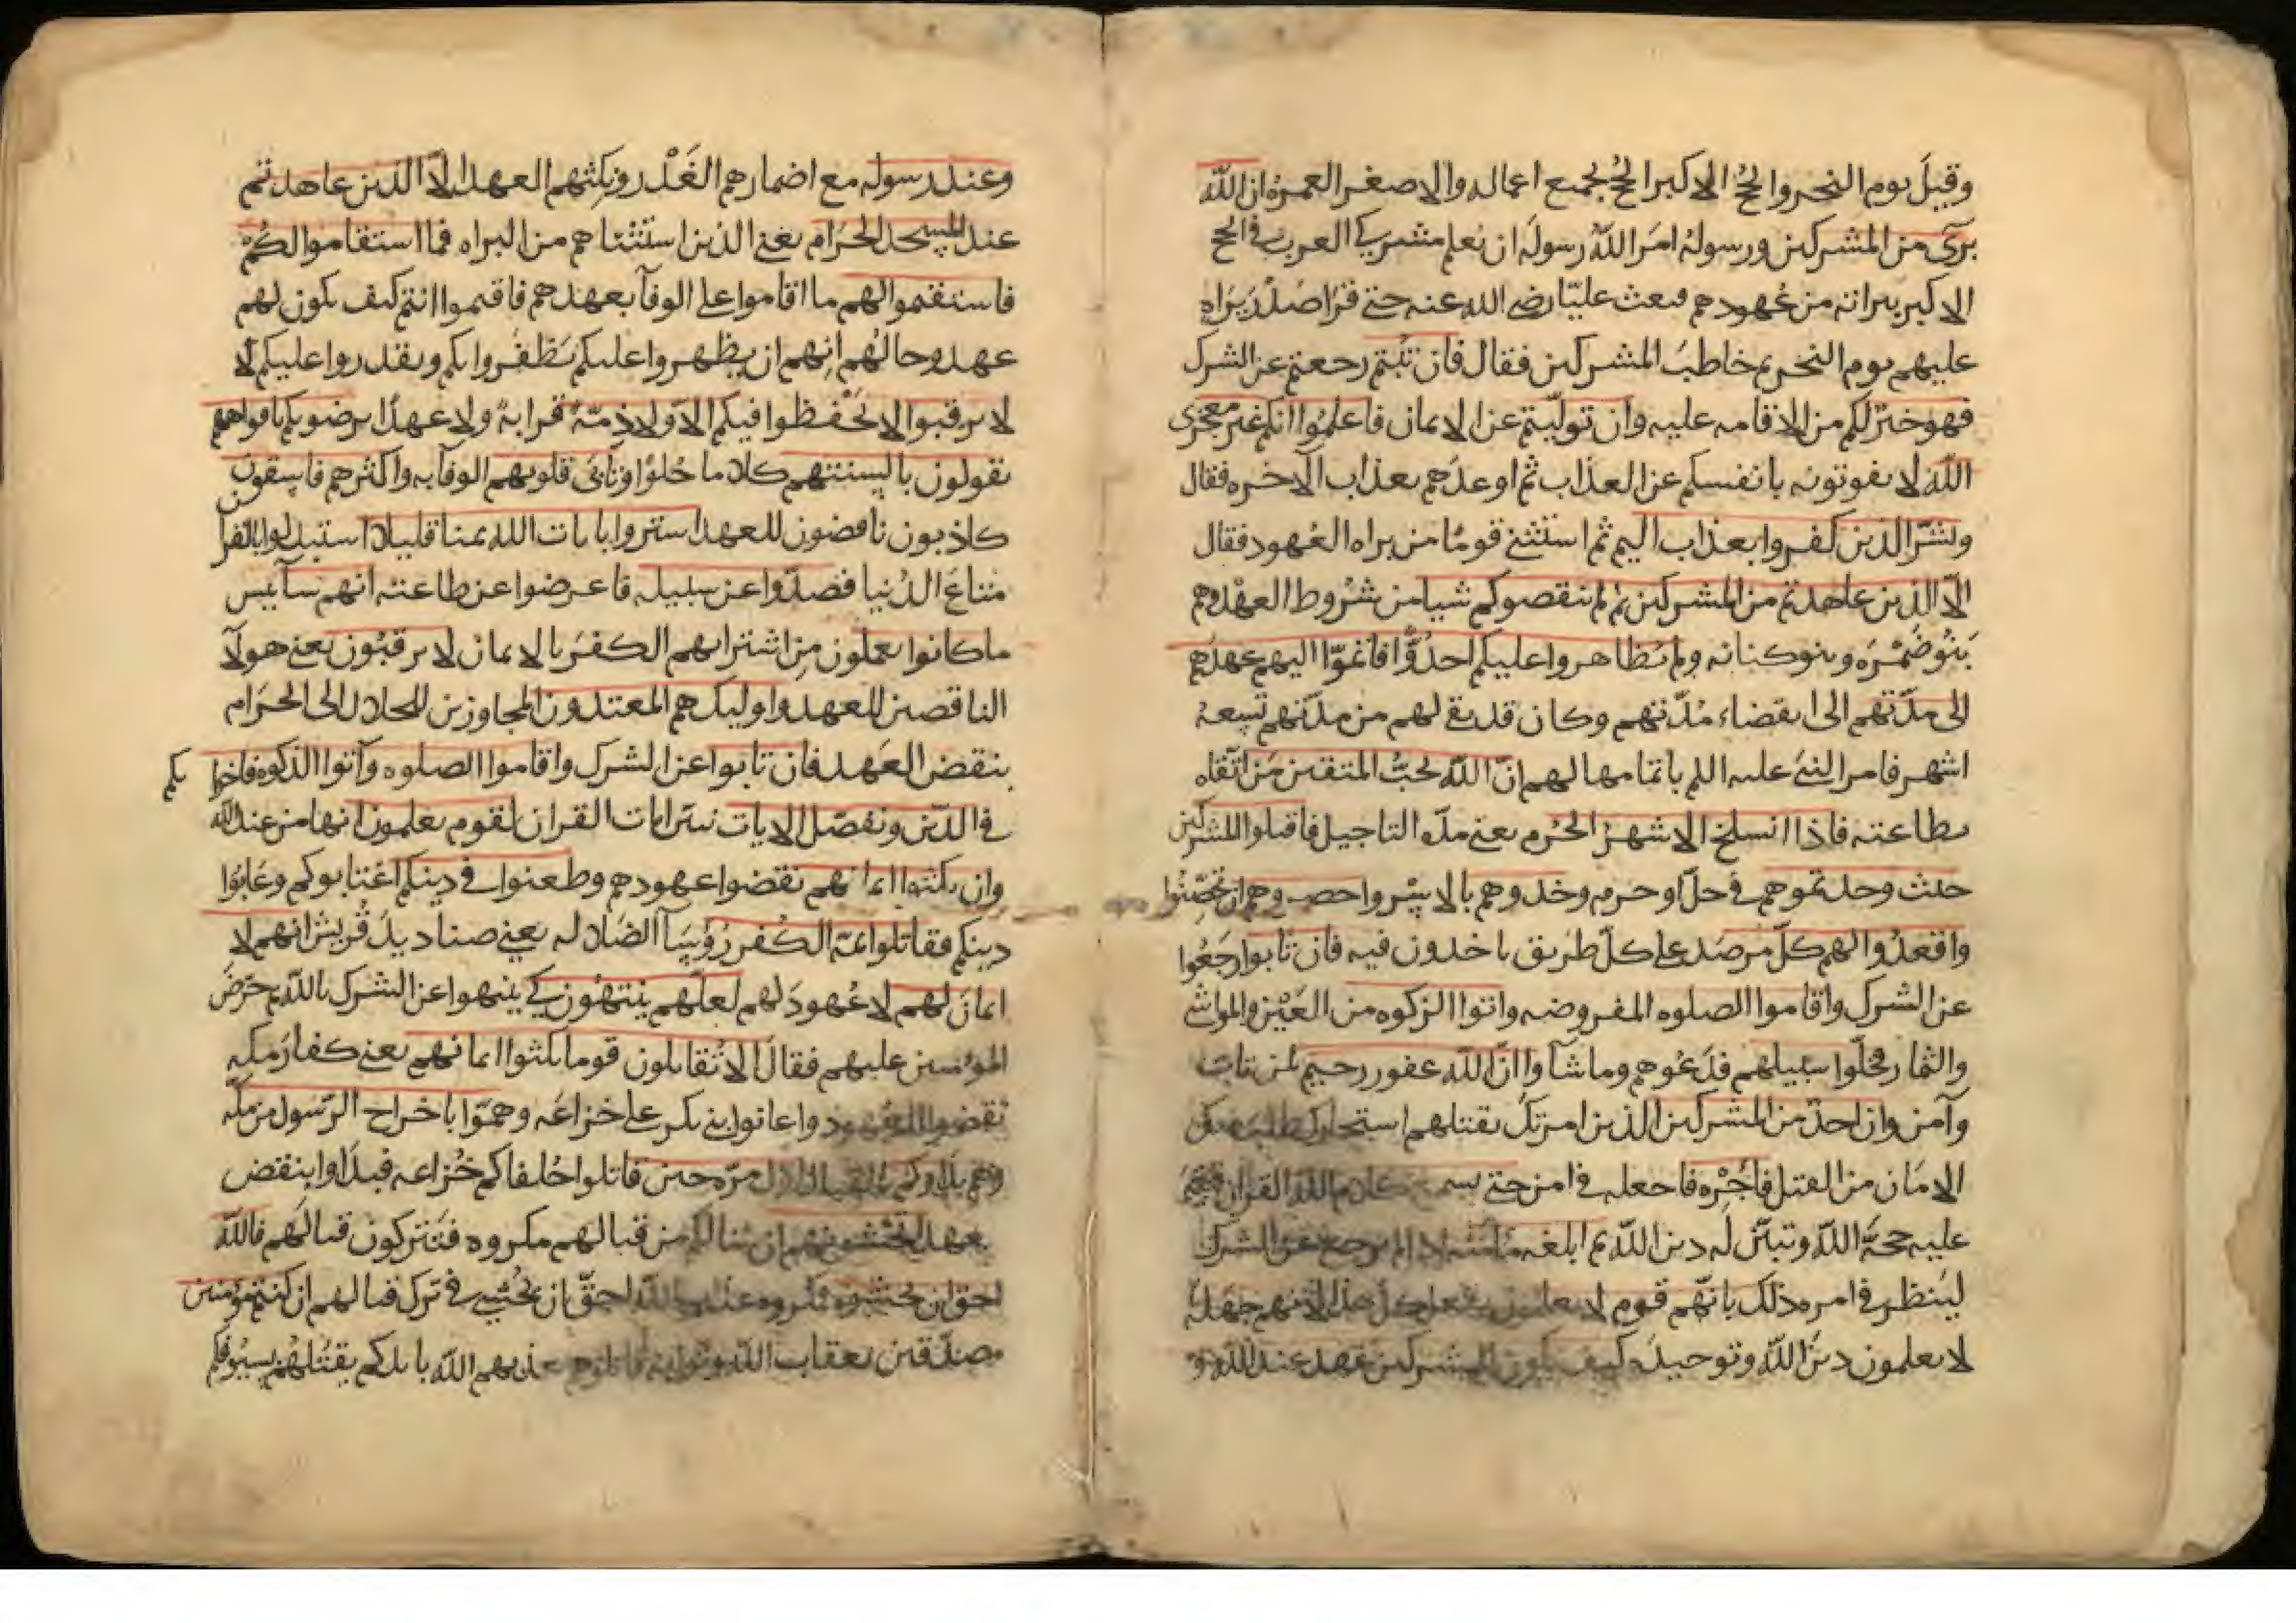 وقيل يوم النحر والحج الاكبر الحج بجميع اعماله والاصغر العمرة ان الله
برىء من المشركين ورسوله امر الله رسوله ان يعلم مشركي العرب في الحج
الاكبر ببراته من عهودهم فبعث عليّا رضي الله عنه حتى قرا صدر براه
عليهم يوم النحر ثم خاطب المشركين فقال فان تبتم رجعتم عن الشرك
فهو خير لكم من الاقامه عليه وان توليتم عن الايمان فاعلموا انكم غير معجزى
الله لا يفوتونه بانفسكم عن العذاب ثم اوعدهم بعذاب الآخره فقال
وبشر الذين كفروا بعذاب اليم ثم استثنى قوما من براه العهود فقال
الّا الذين عاهدتم من المشركين ثم لم ينقصوكم شيا من شروط العهد وهم
بنو ضمره وبنو كنانه ولم يظاهروا عليكم احدا عدوًّا فاتموا اليهم عهدهم
الى مدّتهم الى انقضاء مدّتهم وكان قد بقى لهم من مدّتهم تسعة
اشهر فامر النبى عليه السلم باتمامها لهم انّ الله يحبّ المتقين من اتقاه
بطاعته فاذا انسلخ الاشهر الحرم يعنى مدّه التاجيل فاقتلوا المشركين
حيث وجدتموهم في حلّ او حرم وخذوهم بالاسر واحصروهم ان تحصنوا
واقعدوا لهم كلّ مرصد على كلّ طريق ياخذون فيه فان تابوا رجعوا
عن الشرك واقاموا الصلوه المفروضه واتوا الزكوه من العين والمواشى
والثمار فخلّوا سبيلهم فدعوهم وما شآوا انّ الله غفور رحيم لمن تاب
وآمن وان احدٌ من المشركين الذين امرتك بقتلهم استجارك طلب منك
الامان من القتل فاجره فاجعله في امن حتى يسمع كلام الله القران فتقيم
عليه حجة الله وتبيّن له دين الله ثم ابلغه مامنه اذا لم يرجع عن الشرك
لينظر في امره ذلك بانّهم قوم لا يعلمون يفعل كل هذا لانهم جهله
لا يعلمون دين الله وتوحيده كيف يكون للمشركين عهد عند الله و
وعند رسوله مع اضمارهم الغدر ونكثهم العهد الّا الذين عاهدتم
عند المسجد الحرام يعنى الذين استثناهم من البراه فما استقاموا لكم
فاستقيموا لهم ما اقاموا على الوفآ بعهدهم فاقيموا انتم كيف يكون لهم
عهد وحالهم انهم ان يظهروا عليكم يظفروا بكم ويقدروا عليكم لا
لا يرقبوا لا يحفظوا فيكم الا ولا ذمة قرابة ولا عهدًا يرضونكم بافواههم
يقولون بالسنتهم كلاما حلوا وتابى قلوبهم الوفآ به واكثرهم فاسقون
كاذبون ناقضون للعهد اشتروا بايات الله ثمنا قليلا استبدلوا بالقرآن
متاع الدنيا فصدّوا عن سبيله فاعرضوا عن طاعته انهم سآ بيس
ما كانوا يعملون من اشترايهم الكفر بالايمان لا يرقبون يعنى هولآ
الناقضين للعهد واوليك هم المعتدون المجاوزين للحلال الى الحرام
بنقض العهد فان تابوا عن الشرك واقاموا الصلوه وآتوا الزكوه فاخوانكم
في الدّين ونفصّل الايات نبيّن ايات القران لقوم يعلمون انها من عند الله
وان نكثوا ايمانهم نقضوا عهودهم وطعنوا في دينكم اغتابوكم وعابوا
دينكم فقاتلوا ايمّة الكفر رؤسآ الضلاله يعنى صناديد قريش انهم لا
ايمان لهم لا عهود لهم لعلّهم ينتهون كى ينتهوا عن الشرك بالله ثم حرّض
المؤمنين عليهم فقال الا تقاتلون قوما نكثوا ايمانهم يعنى كفار مكه
نقضوا العهود واعانوا بنى بكر على خزاعه وهمّوا باخراج الرسول من مكه
وهم بدوكم بالقتال اول مرّه حين قاتلوا حلفاكم خزاعه فبداوا بنقض
العهد اتخشونهم ان ينالكم من قتالهم مكروه فتتركون قتالهم فالله
احق ان تخشوه فمكروه عذاب الله احقّ ان يخشى في ترك قتالهم ان كنتم مؤمنين
مصدّقين بعقاب الله وثوابه قاتلوهم يعذبهم الله بايديكم يقتلهم بسيوفكم